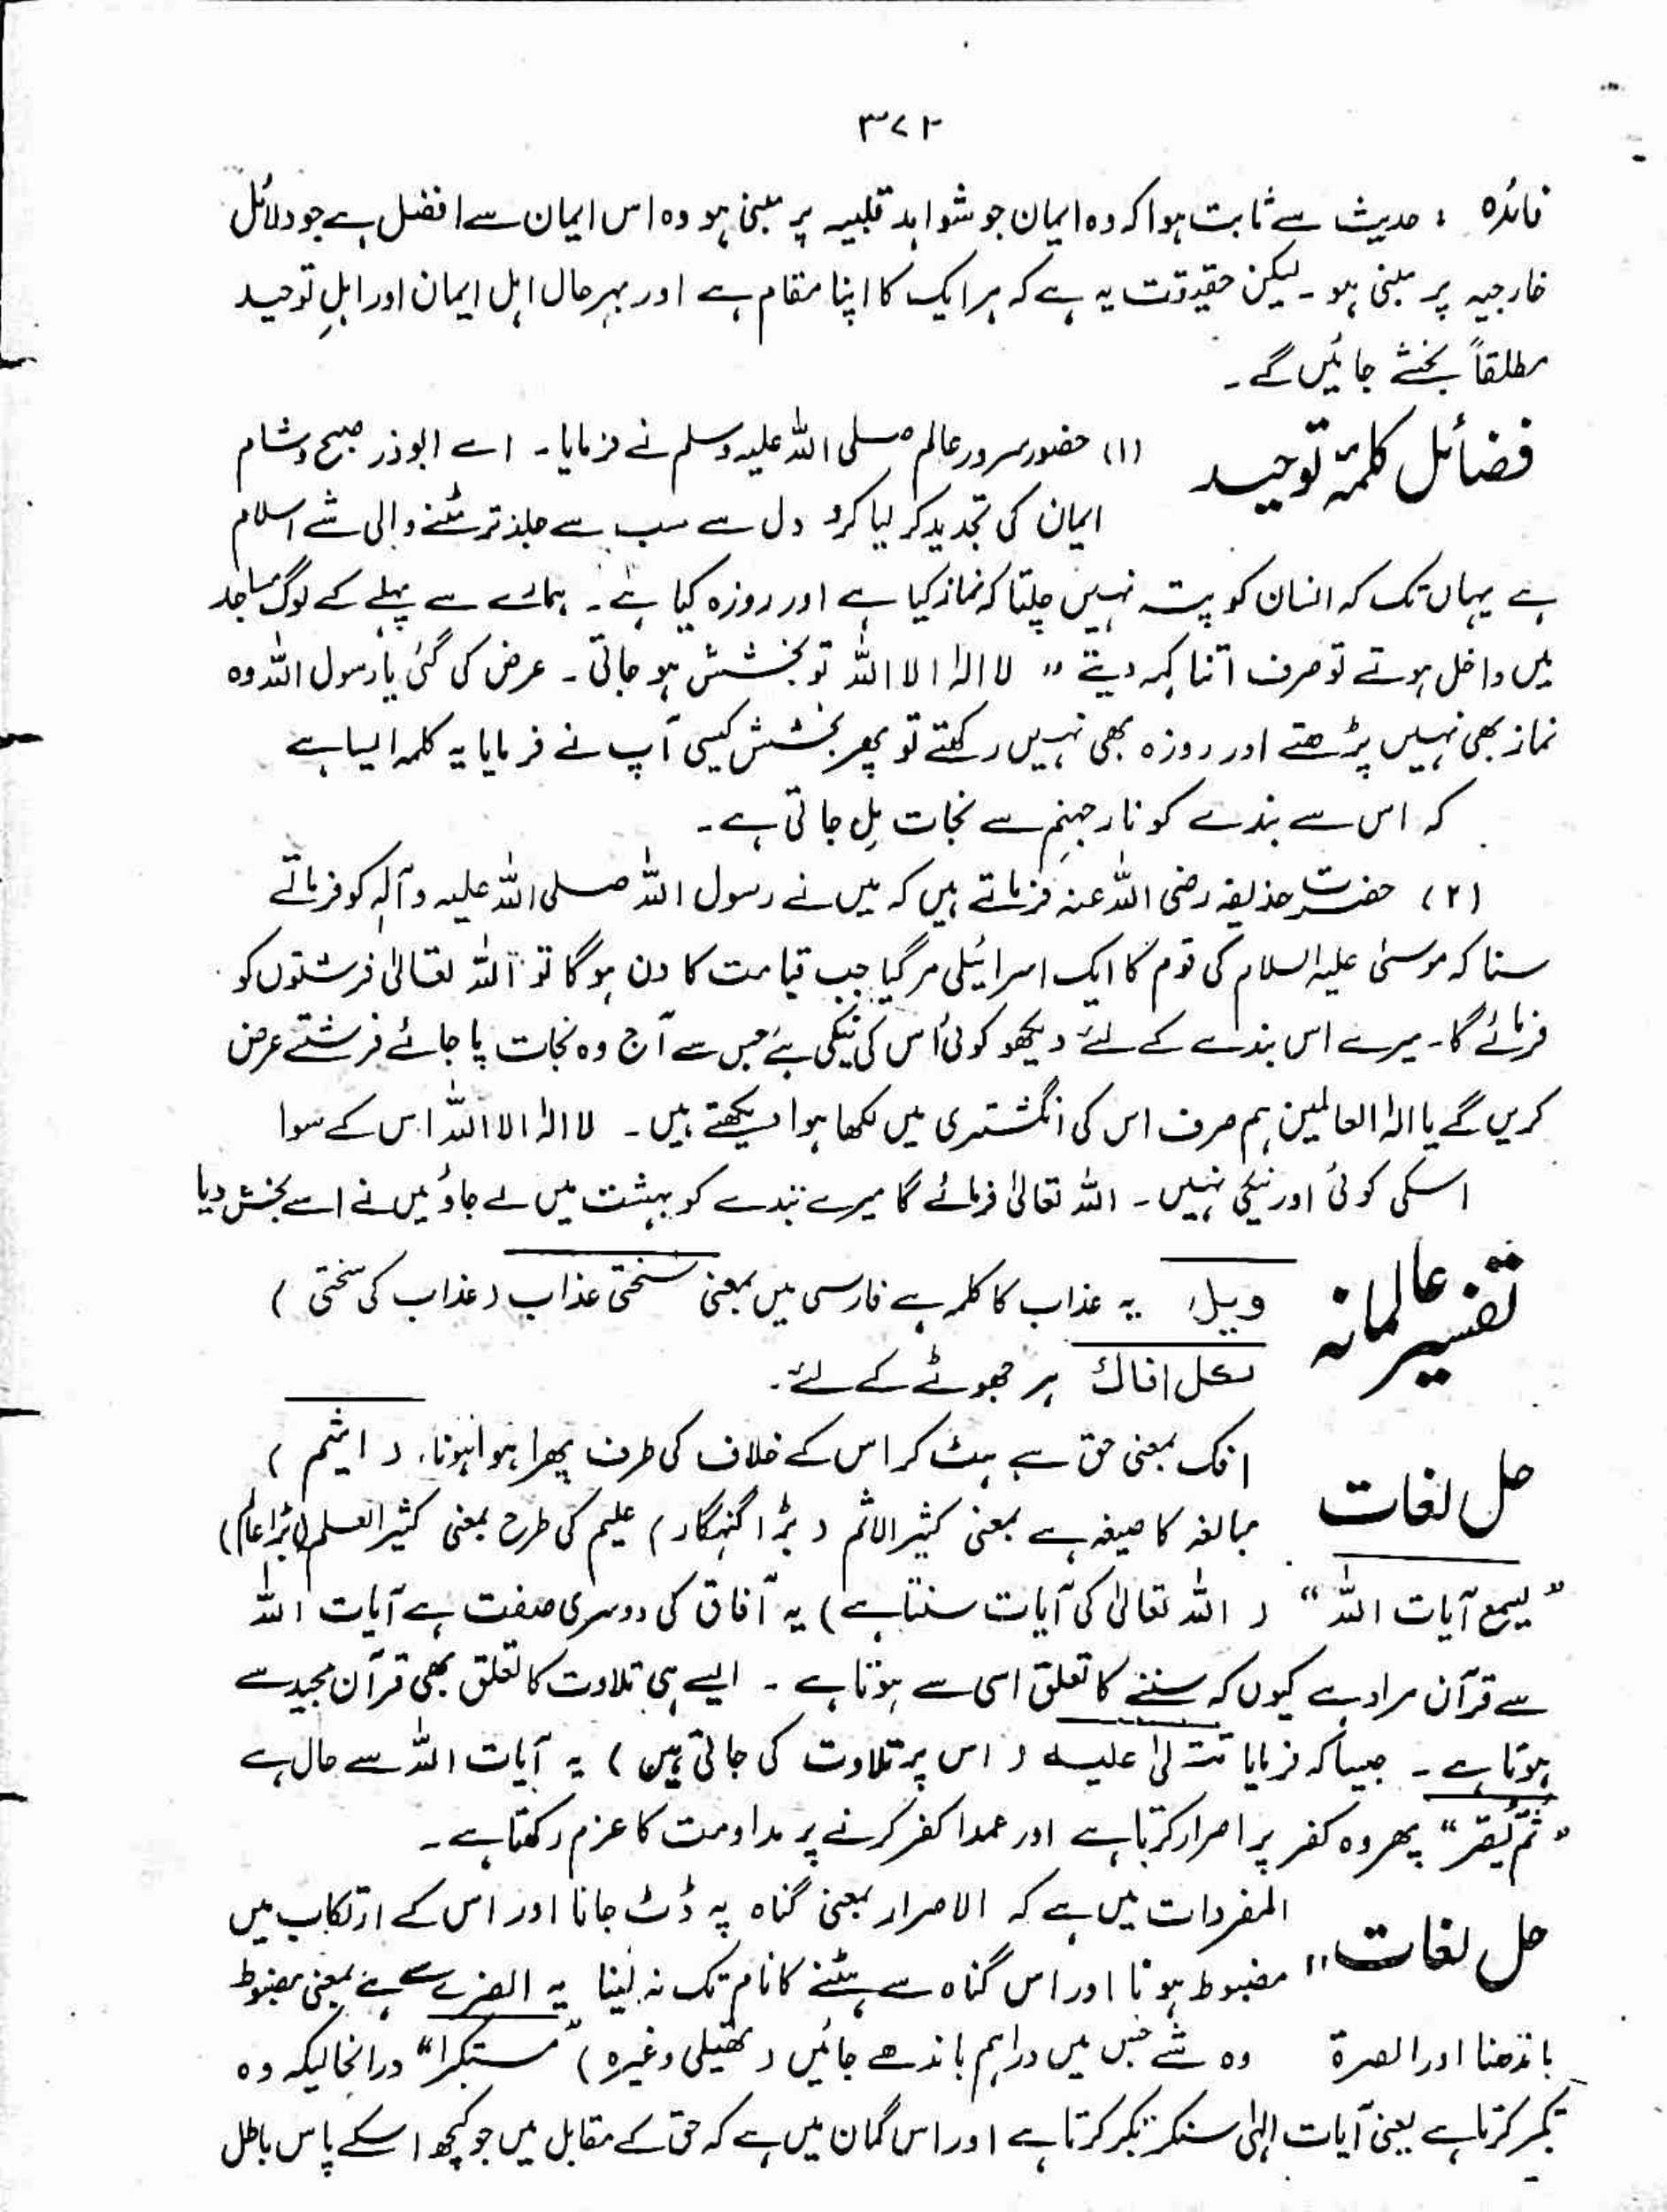 ۳۷۲
فائدہ : حدیث سے ثابت ہوا کہ وہ ایمان جو شواہد قلبیہ پر مبنی ہو وہ اس ایمان سے افضل ہے جو دلائل
خارجیہ پر مبنی ہو ۔ لیکن حقیقت یہ ہے کہ ہر ایک کا اپنا مقام ہے اور بہر حال اہل ایمان اور اہلِ توحید
مطلقاً بخشے جائیں گے ۔
فضائل کلمۂ توحید (۱) حضور سرور عالم صلی اللہ علیہ وسلم نے فرمایا ۔ اے ابوذر صبح و شام
ایمان کی تجدید کر لیا کرو دل سے سب سے جلد تر مٹنے والی شے اسلام
ہے یہاں تک کہ انسان کو پتہ نہیں چلتا کہ نماز کیا ہے اور روزہ کیا ہے ۔ ہمارے سے پہلے کے لوگ مساجد
میں داخل ہوتے تو صرف اتنا کہہ دیتے " لا الہ الا اللہ تو بخشش ہو جاتی ۔ عرض کی گئی یا رسول اللہ وہ
نماز بھی نہیں پڑھتے اور روزہ بھی نہیں رکھتے تو پھر بخشش کیسی آپ نے فرمایا یہ کلمہ ایسا ہے
کہ اس سے بندے کو نار جہنم سے نجات مِل جاتی ہے ۔
(۲) حضرت حذیفہ رضی اللہ عنہ فرماتے ہیں کہ میں نے رسول اللہ صلی اللہ علیہ وآلہٖ کو فرماتے
سنا کہ موسیٰ علیہ السلام کی قوم کا ایک اسرائیلی مر گیا جب قیامت کا دن ہو گا تو اللہ تعالیٰ فرشتوں کو
فرمائے گا ۔ میرے اس بندے کے لئے دیکھو کوئی اس کی نیکی ہے جس سے آج وہ نجات پا جائے فرشتے عرض
کریں گے یا الہ العالمین ہم صرف اس کی انگشتری میں لکھا ہوا دیکھتے ہیں ۔ لا الہ الا اللہ اس کے سوا
اسکی کوئی اور نیکی نہیں ۔ اللہ تعالیٰ فرمائے گا میرے بندے کو بہشت میں لے جاؤ میں نے اسے بخش دیا
تفسیر عالمانہ ویل، یہ عذاب کا کلمہ ہے فارسی میں بمعنی سختی عذاب (عذاب کی سختی)
لکل افاک ہر جھوٹے کے لئے ۔
حل لغات افک بمعنی حق سے ہٹ کر اس کے خلاف کی طرف پھرا ہوا ہونا، (اثیم)
مبالغہ کا صیغہ ہے بمعنی کثیر الاثم (بڑا گنہگار) علیم کی طرح بمعنی کثیر العلم (بڑا عالم)
"یسمع آیات اللہ" (اللہ تعالیٰ کی آیات سنتا ہے) یہ آفاق کی دوسری صفت ہے آیات اللہ
سے قرآن مراد ہے کیوں کہ سننے کا تعلق اسی سے ہوتا ہے ۔ ایسے ہی تلاوت کا تعلق بھی قرآن مجید سے
ہوتا ہے ۔ جیسا کہ فرمایا تتلیٰ علیہ (اس پر تلاوت کی جاتی ہیں) یہ آیات اللہ سے حال ہے
"ثُمَّ یُصِر" پھر وہ کفر پر اصرار کرتا ہے اور عمدا کفر کرنے پر مداومت کا عزم رکھتا ہے ۔
حل لغات" المفردات میں ہے کہ الاصرار بمعنی گناہ پہ ڈٹ جانا اور اس کے ارتکاب میں
مضبوط ہونا اور اس گناہ سے ہٹنے کا نام تک نہ لینا یہ الصر سے ہے بمعنی مضبوط
باندھنا اور الصرۃ وہ شے جس میں دراہم باندھے جائیں (تھیلی وغیرہ) "مستکبرا" درانحالیکہ وہ
تکبر کرتا ہے یعنی آیات الہٰی سنکر تکبر کرتا ہے اور اس گمان میں ہے کہ حق کے مقابل میں جو کچھ اسکے پاس باطل